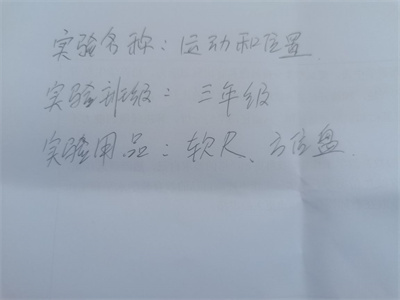 实验名称：运动和位置
实验班级：三年级
实验用品：软尺、方位盘